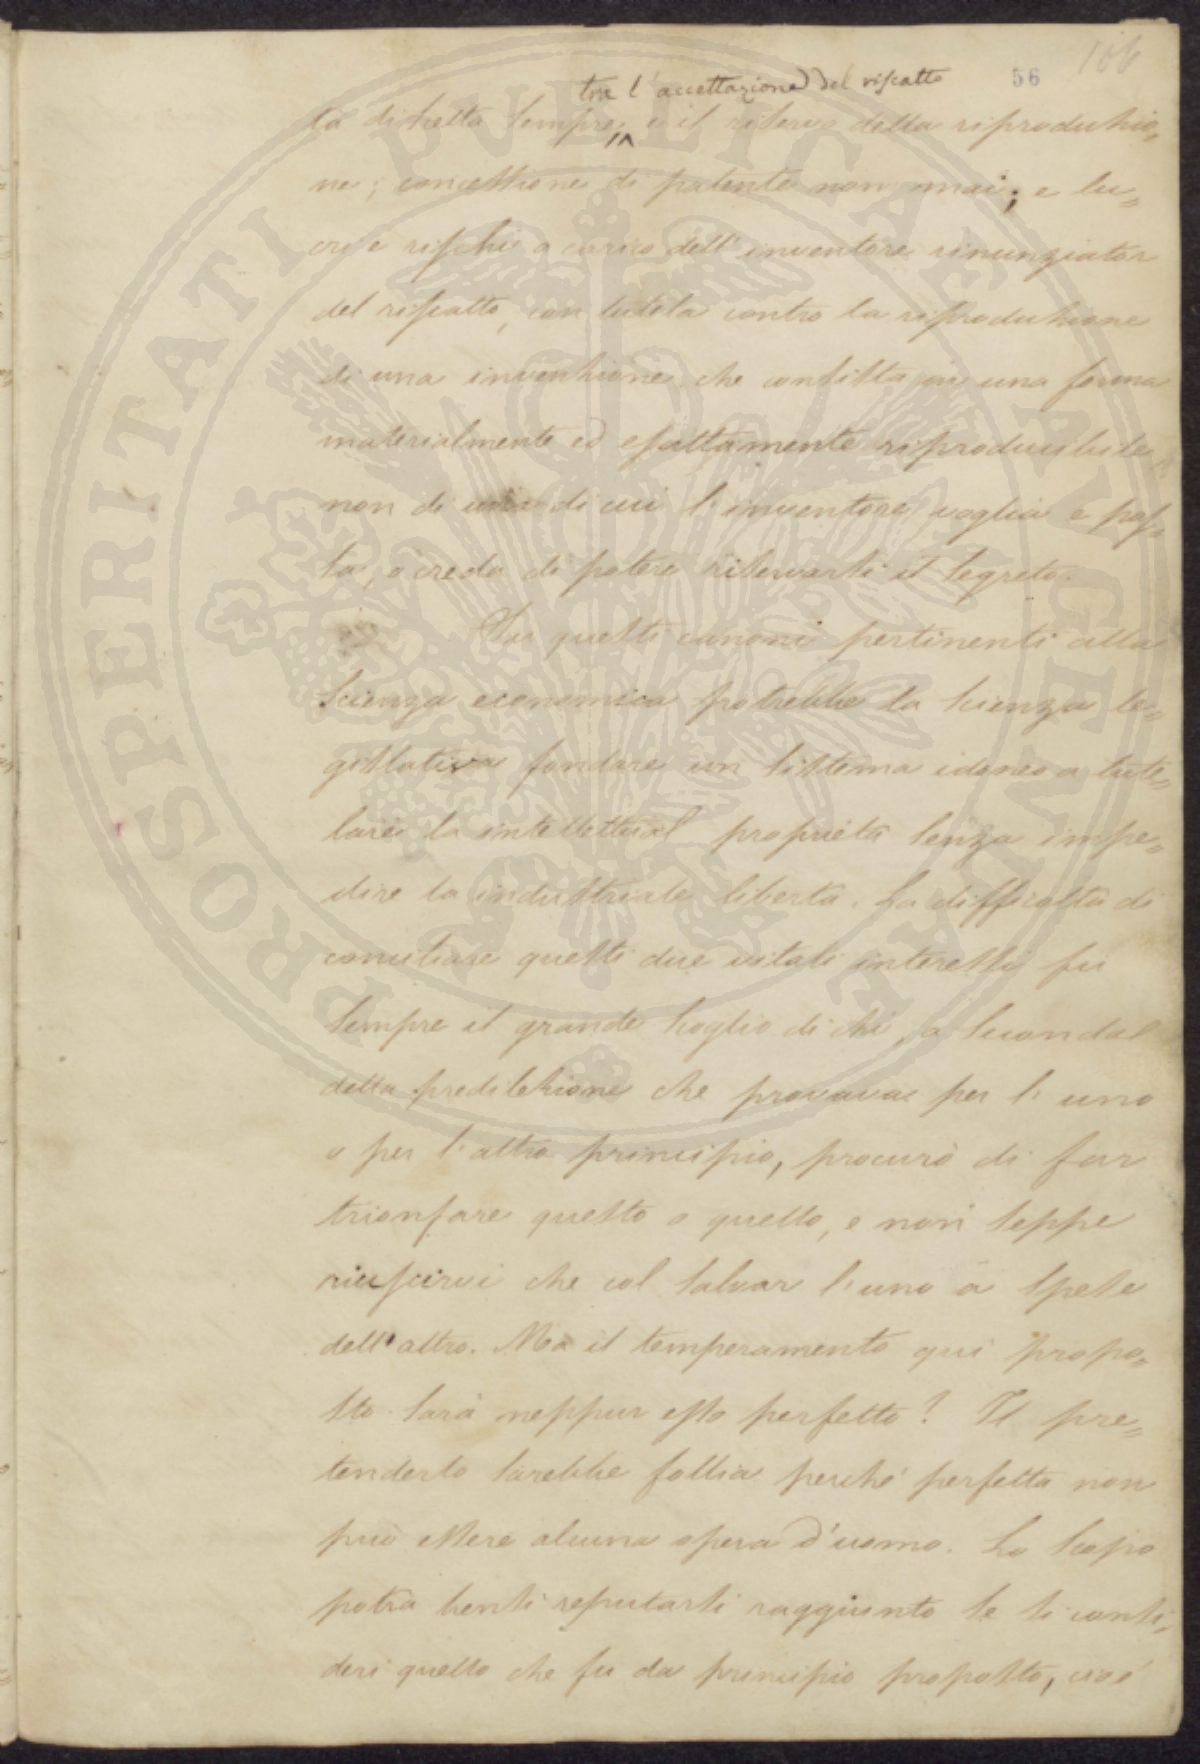 106
56
tra l'accettazione del riscatto
tà di scelta sempre e il riserbo della riproduzio=
ne; concessione di patente non mai; e lu=
cri e rischi a carico dell'inventore rinunziator
del riscatto, con tutela contro la riproduzione
di una invenzione che consista in una forma
materialmente ed esattamente riproducibile
non di una di cui l'inventore voglia e pos=
sa, o creda di potere riservarsi il segreto.
Su questi canoni pertinenti alla
scienza economica potrebbe la scienza le=
gislativa fondare un sistema idoneo a tute=
lare la intellettual proprietà senza impe=
dire la industriale libertà. La difficoltà di
conciliare questi due vitali interessi fu
sempre il grande scoglio di chi, a seconda
della predilezione che provava per l'uno
o per l'altro principio, procurò di far
trionfare questo o quello, e non seppe
riuscirvi che col salvar l'uno a spese
dell'altro. Ma il temperamento qui propo=
sto sarà neppur esso perfetto? Il pre=
tenderlo sarebbe follia perché perfetta non
può essere alcuna opera d'uomo. Lo scopo
potrà bensì reputarsi raggiunto se si consi=
deri quello che fu da principio proposto, cioè
PROSPERITATI PVBLICAE AVGENDAE